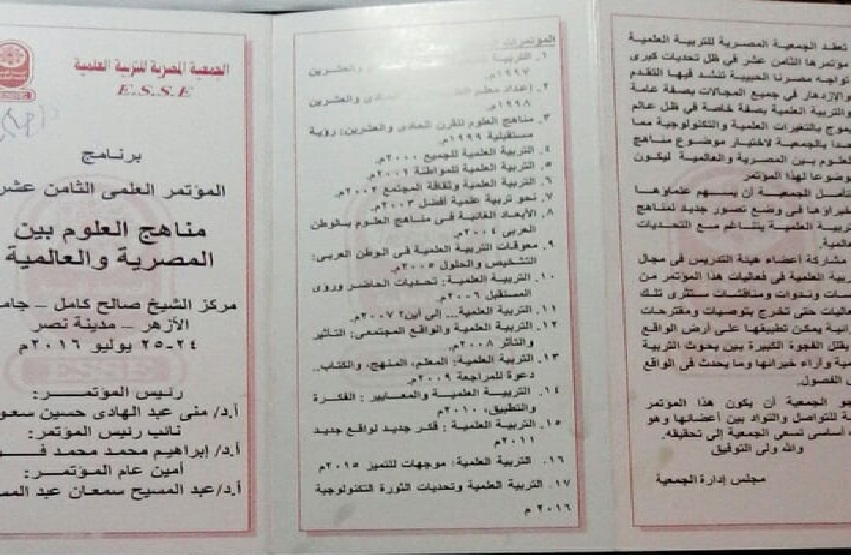 تعقد الجمعية المصرية للتربية العلمية
مؤتمرها الثامن عشر في ظل تحديات كبرى
تواجه مصرنا الحبيبة تنشد فيها التقدم
والازدهار في جميع المجالات بصفة عامة
والتربية العلمية بصفة خاصة في ظل عالم
يموج بالتغيرات العلمية والتكنولوجية معا
بالجمعية لاختيار موضوع مناهج
العلوم بين المصرية والعالمية ليكون
موضوعا لهذا المؤتمر
الجمعية أن يسهم علماؤها
وخبراؤها في وضع تصور جديد لمناهج
التربية العلمية يتناغم مع التحديات
العالمية.
مشاركة أعضاء هيئة التدريس في مجال
التربية العلمية في فعاليات هذا المؤتمر من
وندوات ومناقشات ستثرى تلك
حتى تخرج بتوصيات ومقترحات
يمكن تطبيقها على أرض الواقع
يقلل الفجوة الكبيرة بين بحوث التربية
وآراء خبرائها وما يحدث في الواقع
الفصول.
الجمعية أن يكون هذا المؤتمر
للتواصل والتواد بين أعضائها وهو
أساسى تسعي الجمعية إلى تحقيقه.
والله ولى التوفيق
مجلس إدارة الجمعية
المؤتمرات
١. التربية والعشرين
١٩٩٧م.
٢. إعداد معلم الحادى والعشرين
١٩٩٨م.
٣. مناهج العلوم للقرن الحادى والعشرين: رؤية
مستقبلية ١٩٩٩م.
٤. التربية العلمية للجميع ٢٠٠٠م.
٥. التربية العلمية للمواطنة ٢٠٠١م.
٦. التربية العلمية وثقافة المجتمع ٢٠٠٢م.
٧. نحو تربية علمية أفضل ٢٠٠٣م.
٨. الأبعاد الغائبة فى مناهج العلوم بالوطن
العربى ٢٠٠٤م.
٩. معوقات التربية العلمية فى الوطن العربى:
التشخيص والحلول ٢٠٠٥م.
١٠. التربية العلمية: تحديات الحاضر ورؤى
المستقبل ٢٠٠٦م.
١١. التربية العلمية... إلى أين؟ ٢٠٠٧م.
١٢. التربية العلمية والواقع المجتمعى: التأثير
والتأثر ٢٠٠٨م.
١٣. التربية العلمية: المعلم، المنهج، والكتاب..
دعوة للمراجعة ٢٠٠٩م.
١٤. التربية العلمية والمعايير: الفكرة
والتطبيق، ٢٠١٠م.
١٥. التربية العلمية: فكر جديد لواقع جديد
٢٠١١م
١٦. التربية العلمية: موجهات للتميز ٢٠١٥م
١٧. التربية العلمية وتحديات الثورة التكنولوجية
٢٠١٦م
الجمعية المصرية للتربية العلمية
E.S.S.E
برنامج
المؤتمر العلمى الثامن عشر
مناهج العلوم بين
المصرية والعالمية
مركز الشيخ صالح كامل –
الأزهر – مدينة نصر
٢٤-٢٥ يوليو ٢٠١٦م
رئيس المؤتمر:
أ.د/ منى عبد الهادى حسين
نائب رئيس المؤتمر:
أ.د/ إبراهيم محمد محمد
أمين عام المؤتمر:
أ.د/عبد المسيح سمعان عبد